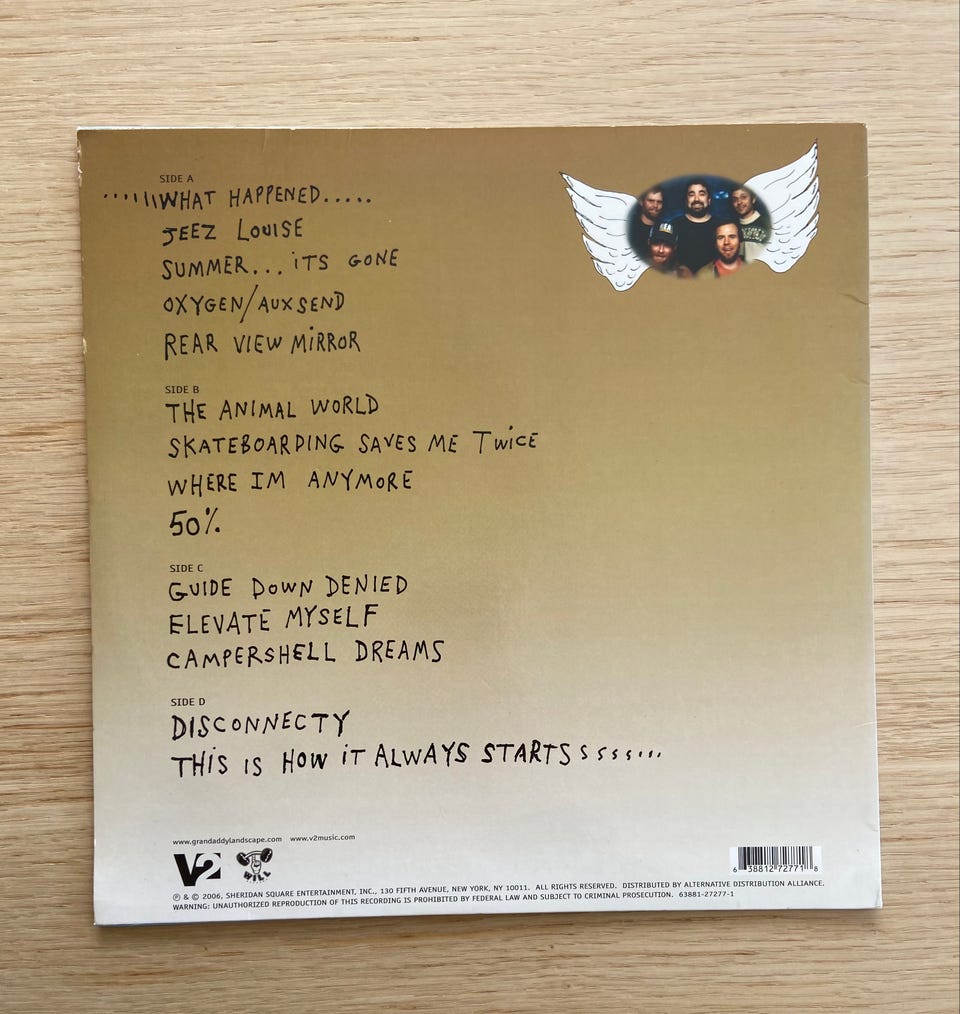 SIDE A
......WHAT HAPPENED.....
JEEZ LOUISE
SUMMER... ITS GONE
OXYGEN/AUXSEND
REAR VIEW MIRROR
SIDE B
THE ANIMAL WORLD
SKATEBOARDING SAVES ME TWICE
WHERE IM ANYMORE
50%
SIDE C
GUIDE DOWN DENIED
ELEVATE MYSELF
CAMPERSHELL DREAMS
SIDE D
DISCONNECTY
THIS IS HOW IT ALWAYS STARTSsssss...
www.grandaddylandscape.com www.v2music.com
V2 WILL
6 38812 72771 8
℗ & © 2006, SHERIDAN SQUARE ENTERTAINMENT, INC., 130 FIFTH AVENUE, NEW YORK, NY 10011. ALL RIGHTS RESERVED. DISTRIBUTED BY ALTERNATIVE DISTRIBUTION ALLIANCE.
WARNING: UNAUTHORIZED REPRODUCTION OF THIS RECORDING IS PROHIBITED BY FEDERAL LAW AND SUBJECT TO CRIMINAL PROSECUTION. 63881-27277-1